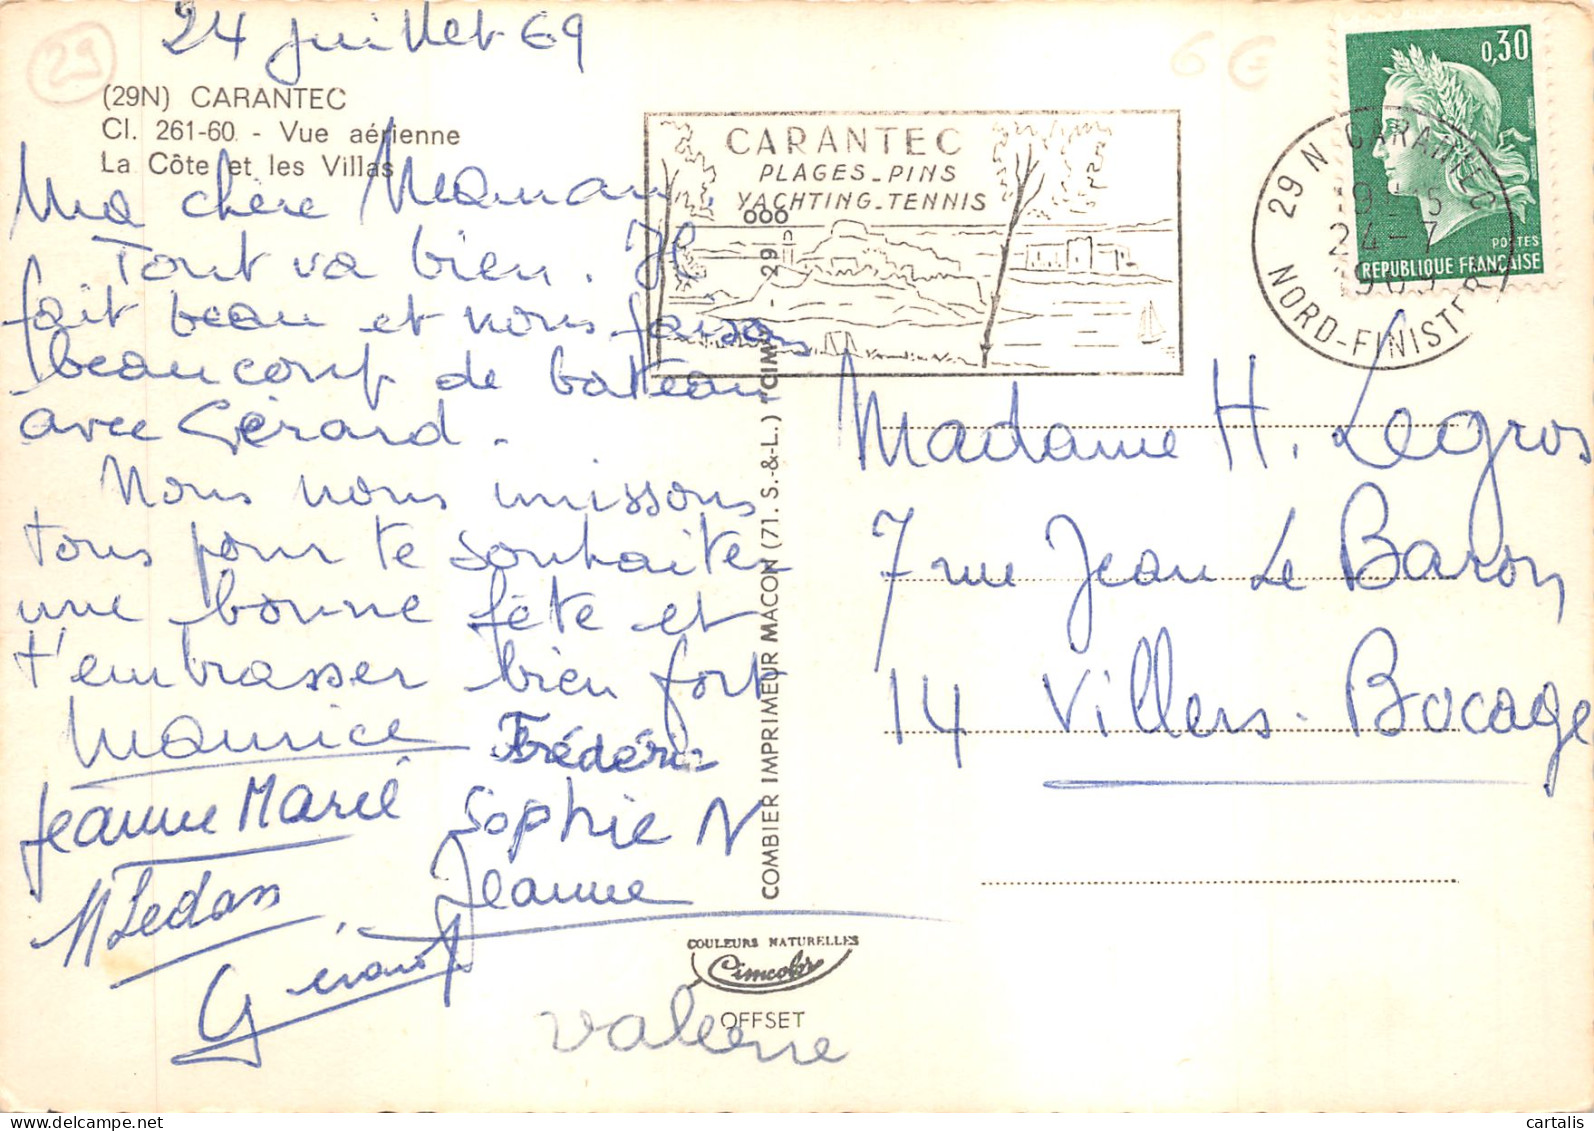 24 juillet 69
29
(29N) CARANTEC
Cl. 261-60 - Vue aérienne
La Côte et les Villas
Ma chère Maman,
Tout va bien. Il
fait beau et nous faisons
beaucoup de bateau
avec Gérard.
Nous nous unissons
tous pour te souhaiter
une bonne fête et
t'embrasser bien fort
Maurice Frédéric
Jeanne Marie Sophie N
Jeanne
Gérard
Valérie
CARANTEC
PLAGES_PINS
YACHTING_TENNIS
COMBIER IMPRIMEUR MACON (71. S.-&-L.) "CIM"
COULEURS NATURELLES
Cimcolor
OFFSET
6€
0,30
POSTES
REPUBLIQUE FRANÇAISE
29 N CARANTEC
24-7
1969
NORD-FINISTERE
Madame H. Legros
7 rue Jean Le Baron
14 Villers-Bocage
cartalis